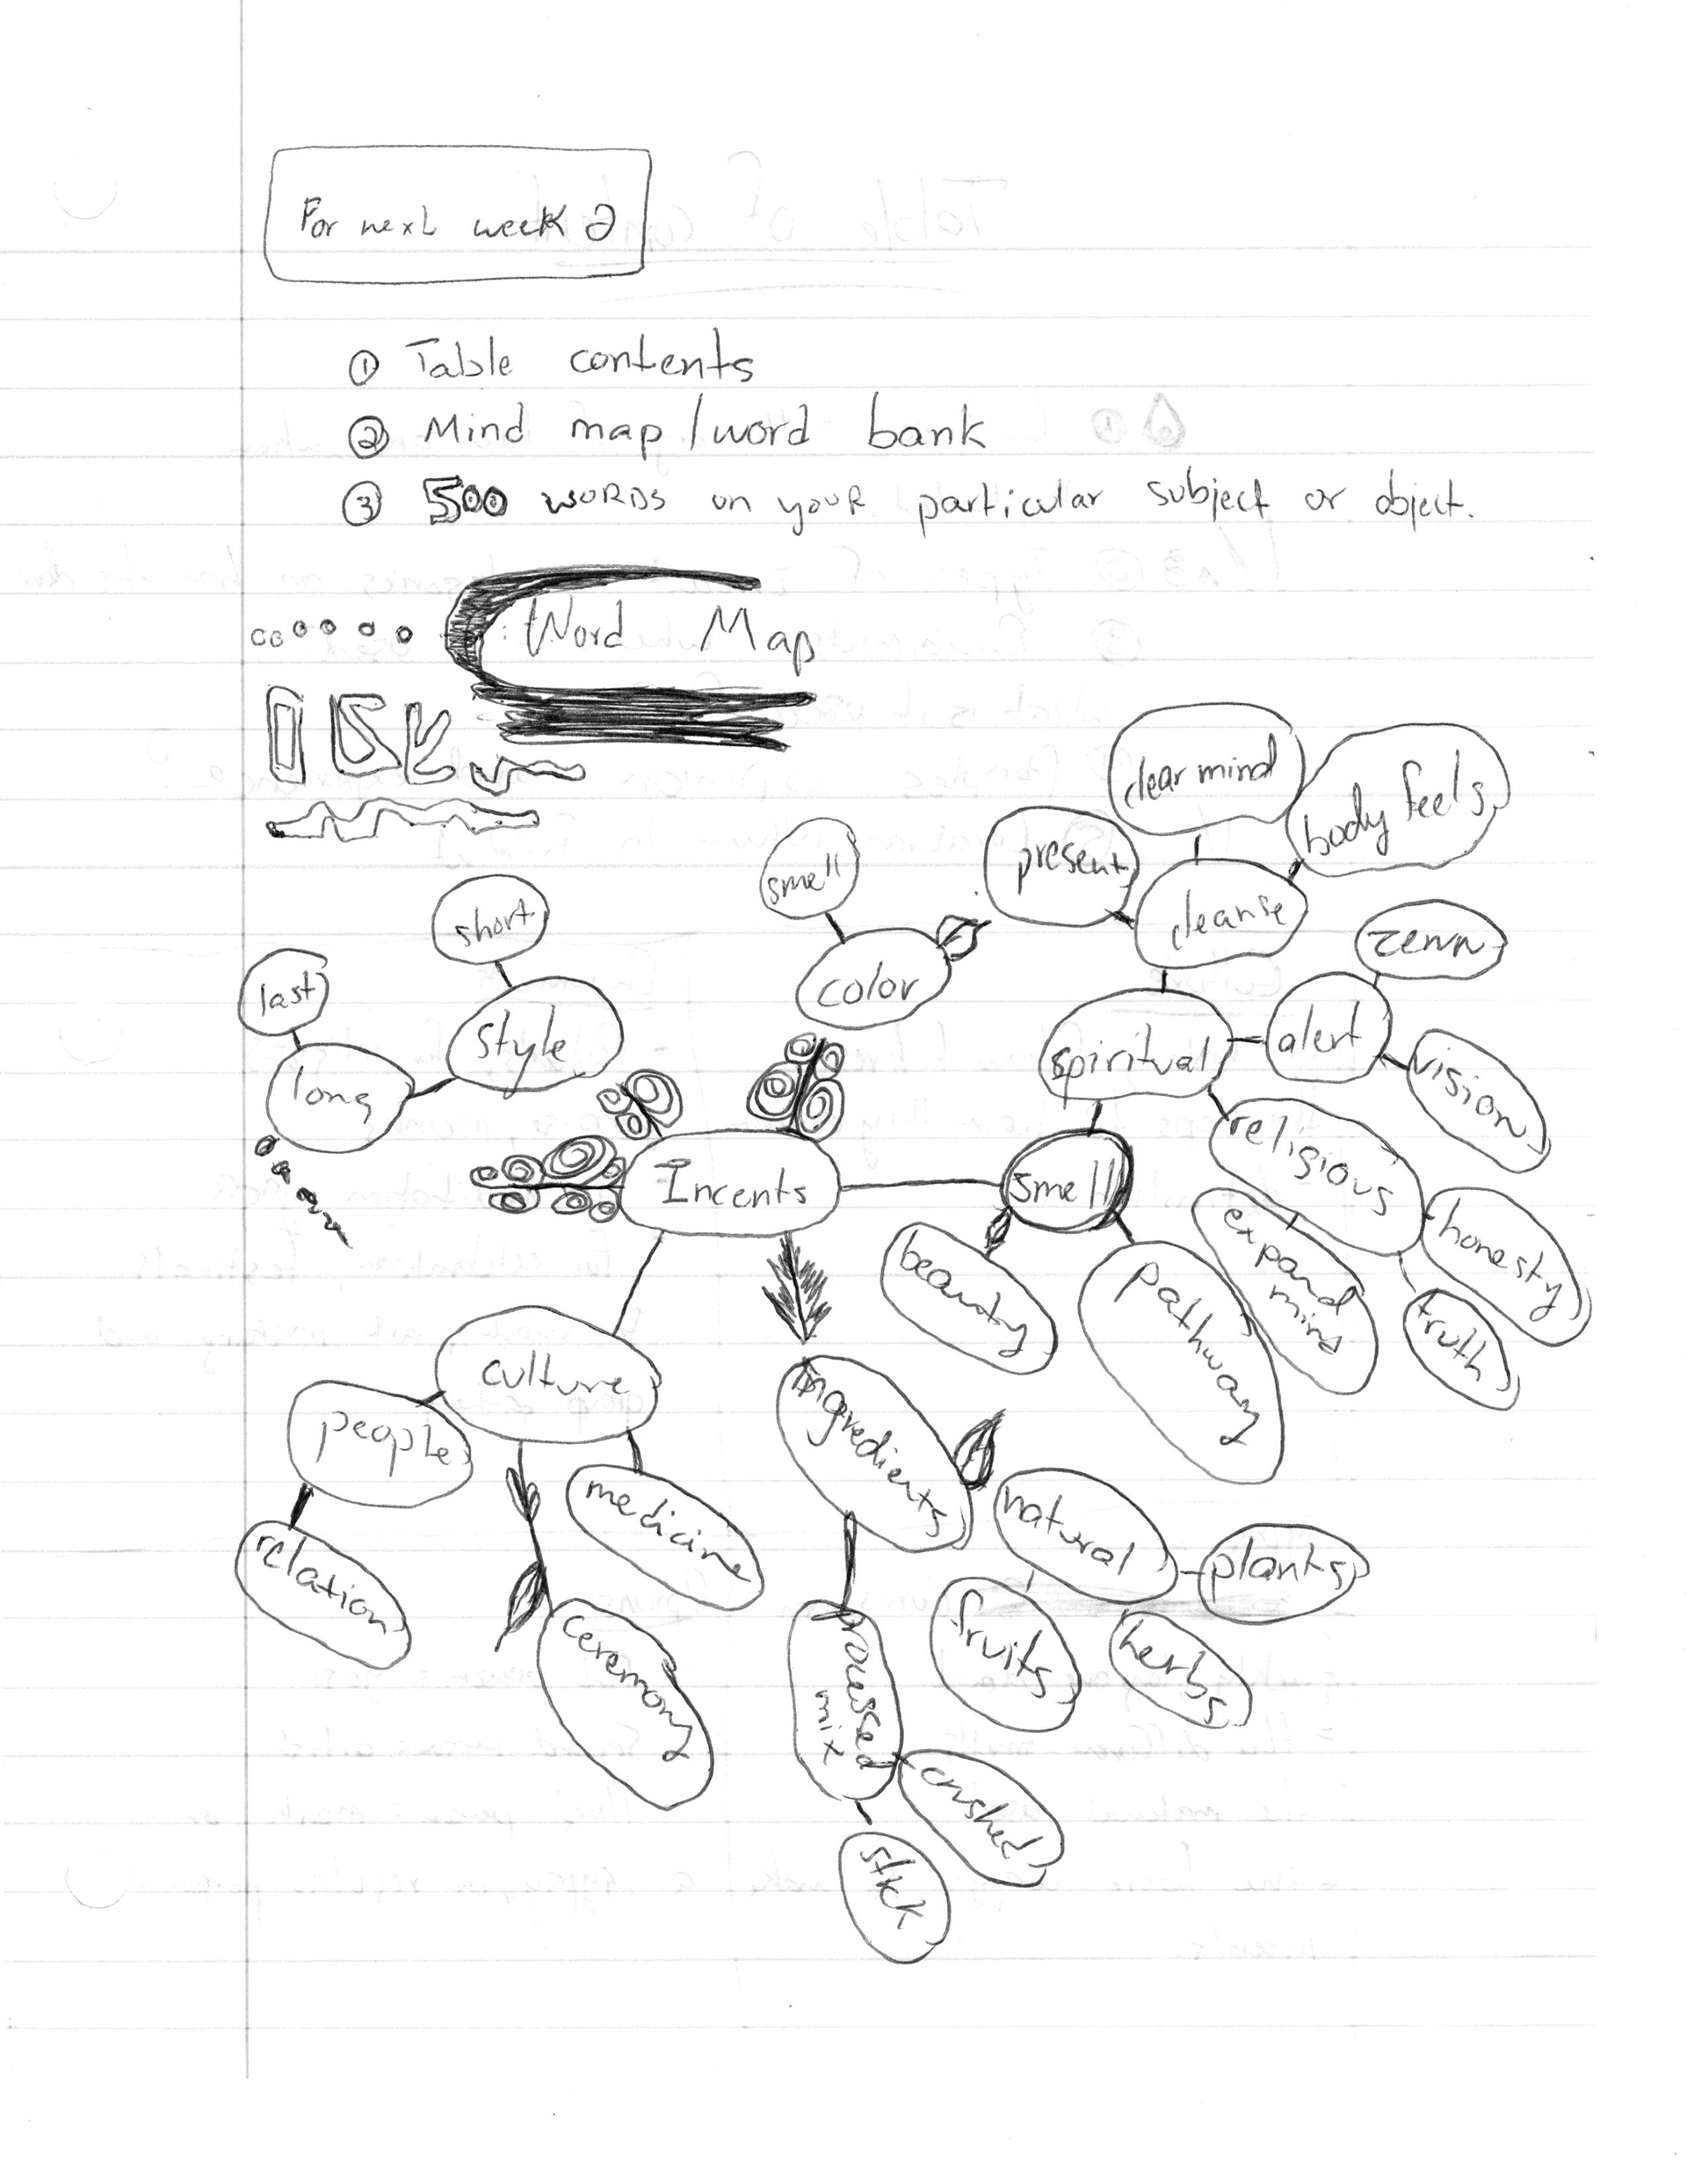 For next week 2
① Table contents
② Mind map / word bank
③ 500 WORDS on your particular subject or object.
Word Map
clear mind
body feels
present
smell
cleanse
short
zenn
color
last
style
alert
spiritual
long
vision
religious
Incents
smell
honesty
expand
mind
beauty
pathway
truth
culture
people
ingredients
medicine
natural
plants
relation
fruits
herbs
ceremony
processed
mix
crushed
stick